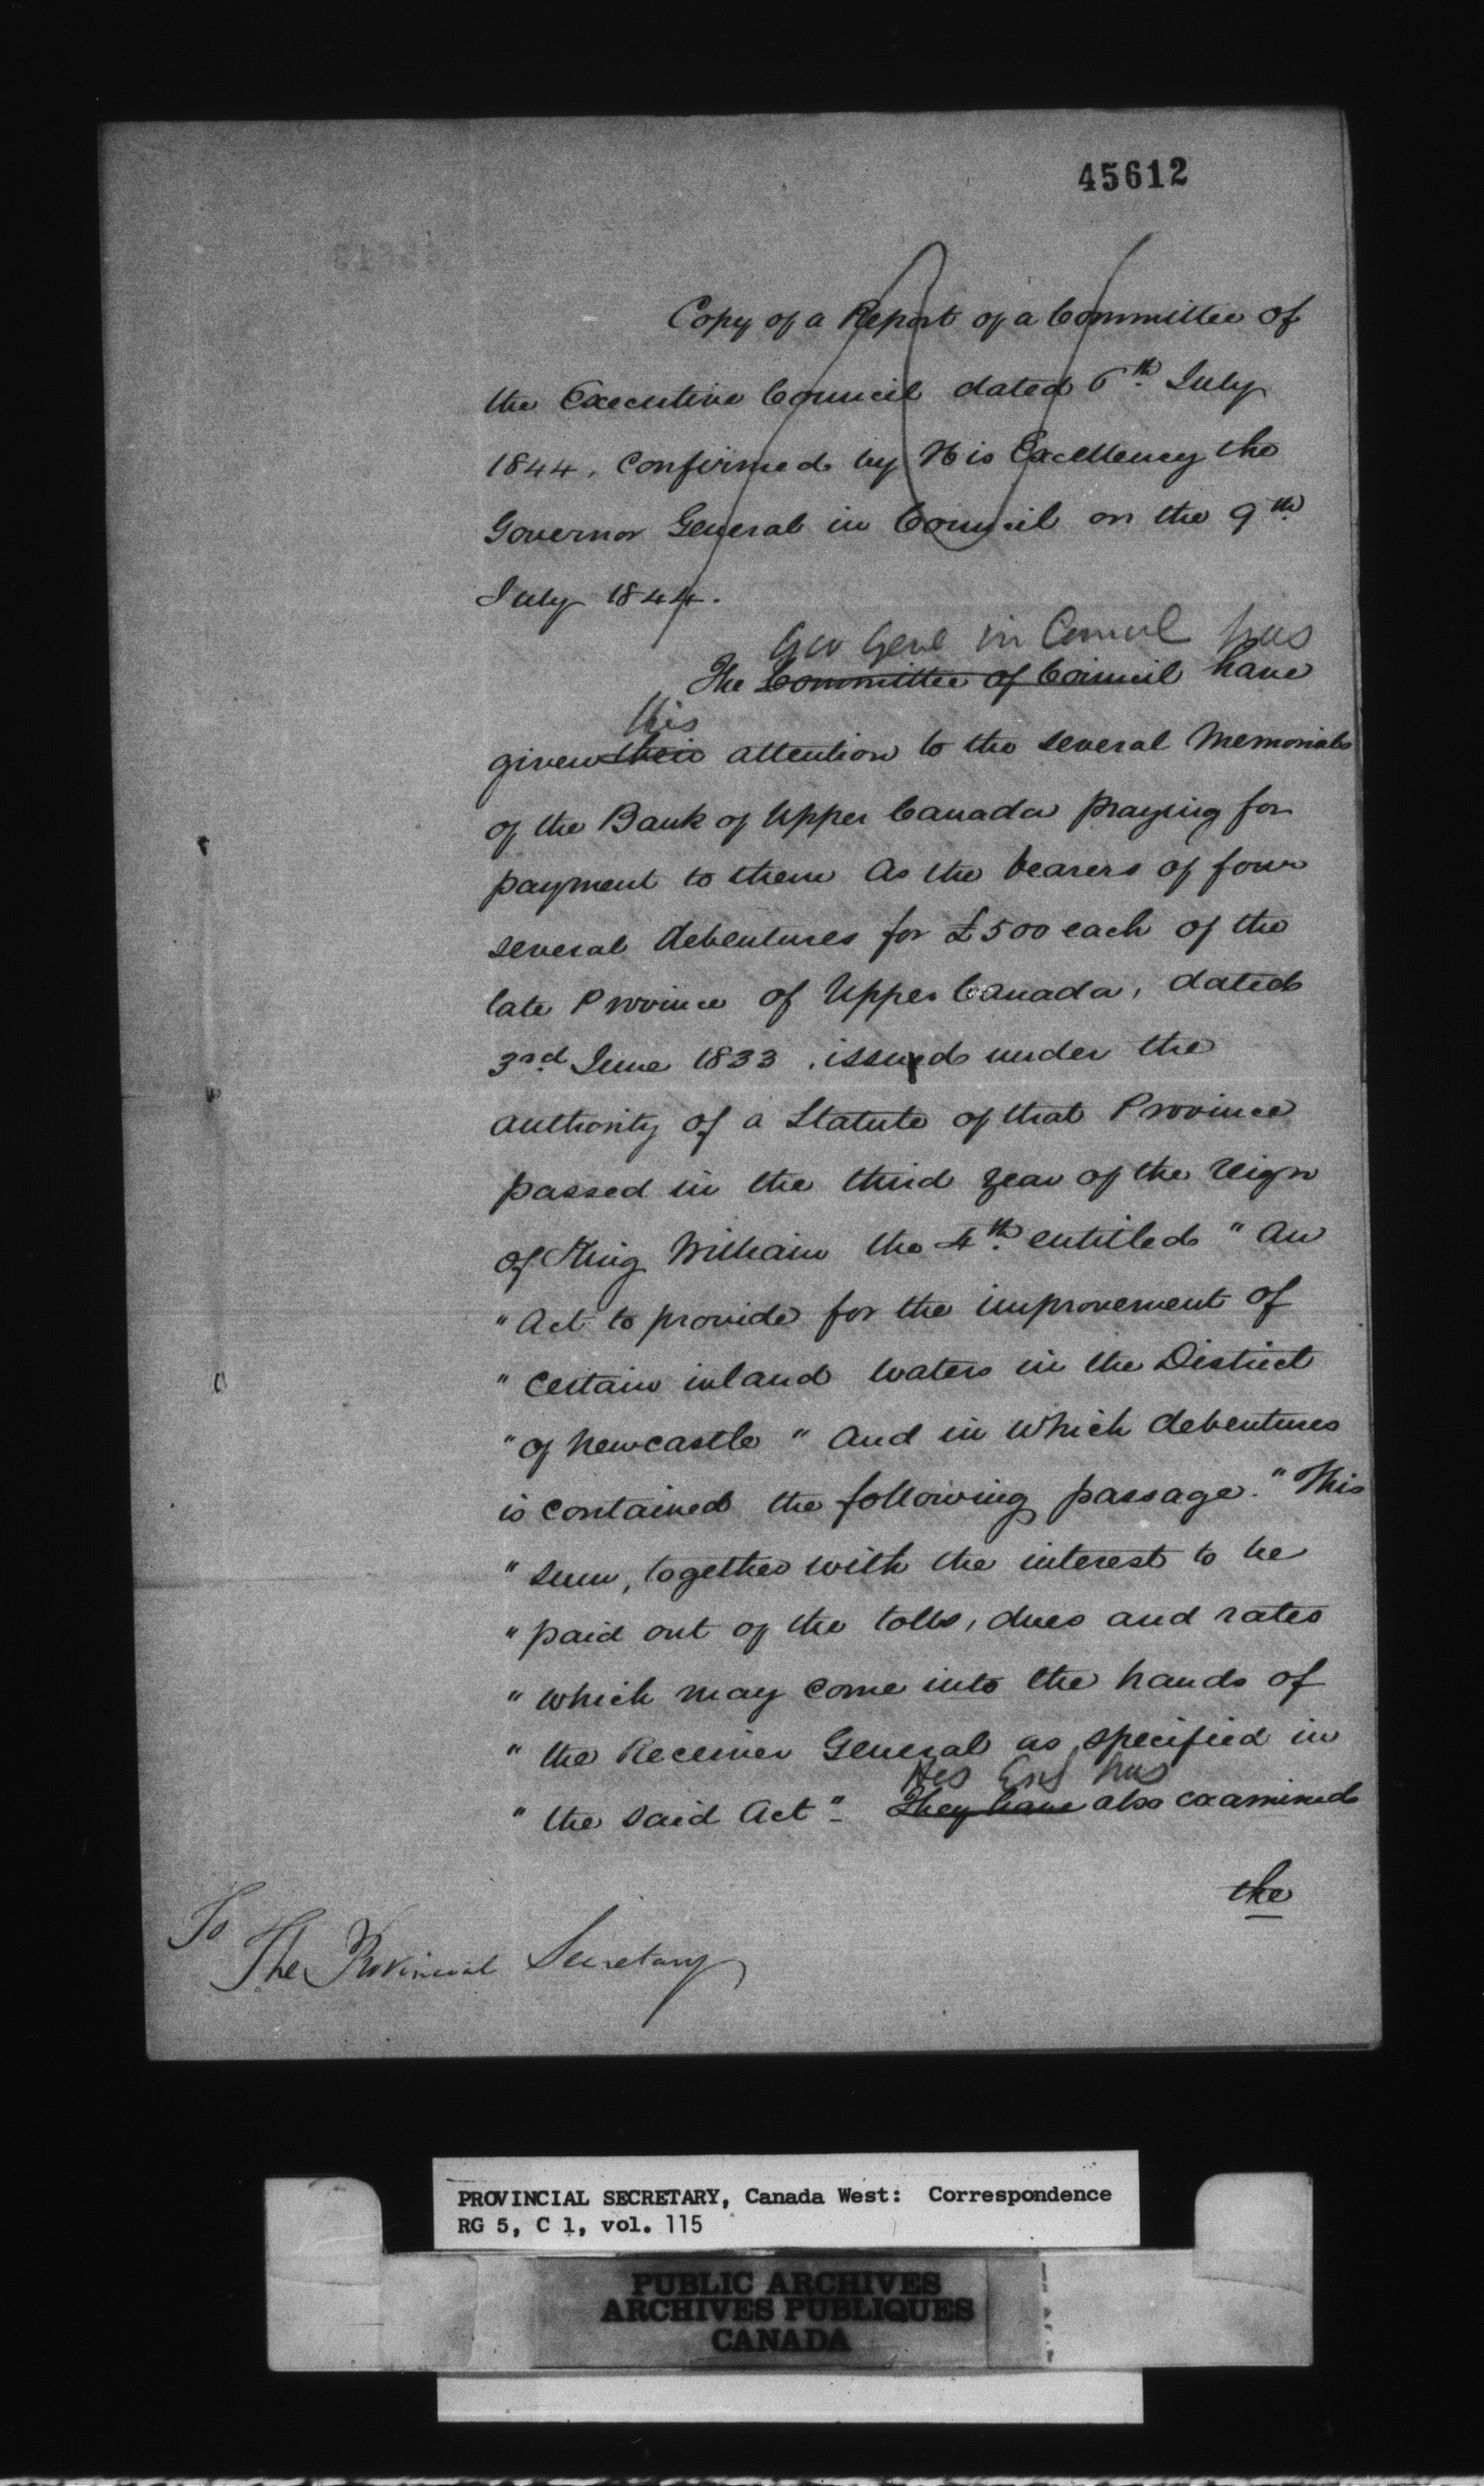 45612
Copy of a Report of a Committee of
the Executive Council dated 6th July
1844, confirmed by His Excellency the
Governor General in Council on the 9th
July 1844.
Gov Genl in Council has
The Committee of Council have
his
given their attention to the several Memorials
of the Bank of Upper Canada praying for
payment to them as the bearers of four
several debentures for £500 each of the
late Province of Upper Canada, dated
3rd June 1833, issued under the
authority of a Statute of that Province
passed in the third year of the reign
of King William the 4th entitled " An
" Act to provide for the improvement of
" certain inland waters in the District
" of Newcastle " and in which debentures
is contained the following passage. " This
" sum, together with the interest to be
" paid out of the tolls, dues and rates
" which may come into the hands of
" the Receiver General as specified in
His Exc has
" the said Act " - They have also examined
the
To
The Provincial Secretary
PROVINCIAL SECRETARY, Canada West: Correspondence
RG 5, C 1, vol. 115
PUBLIC ARCHIVES
ARCHIVES PUBLIQUES
CANADA